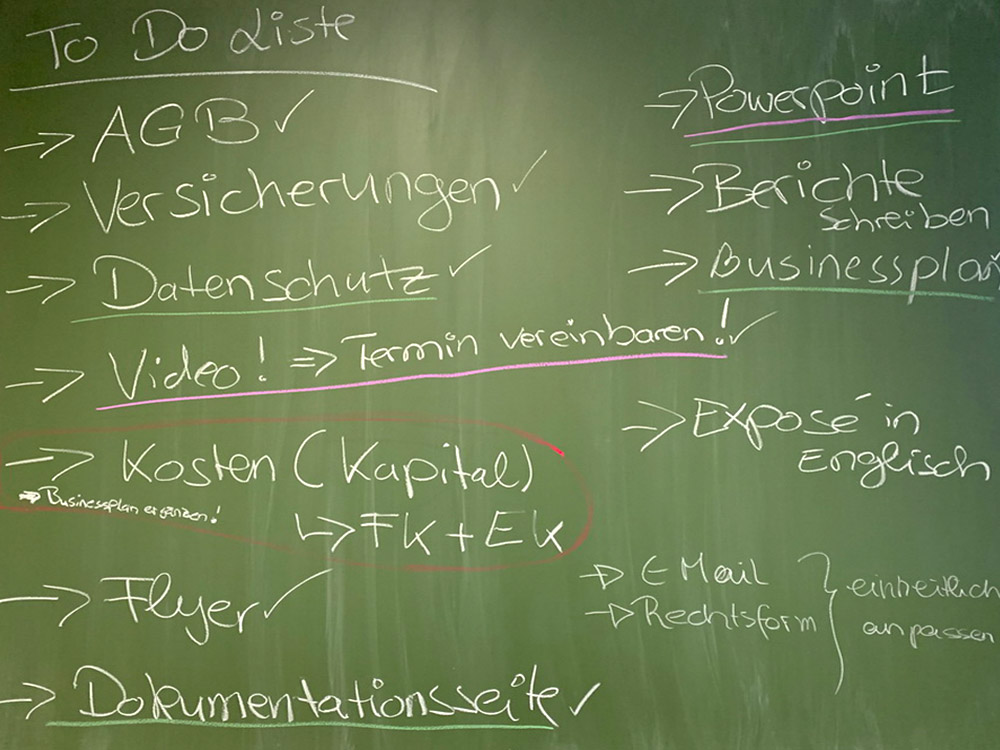 To Do Liste
→ AGB ✓
→ Versicherungen ✓
→ Datenschutz ✓
→ Video! ⇒ Termin vereinbaren! ✓
→ Kosten (Kapital)
⇒ Businessplan ergänzen!
↳ FK + EK
→ Flyer ✓
→ Dokumentationsseite ✓
→ Powerpoint
→ Berichte
schreiben
→ Businessplan
→ Exposé in
Englisch
→ E Mail
→ Rechtsform
einheitlich
anpassen